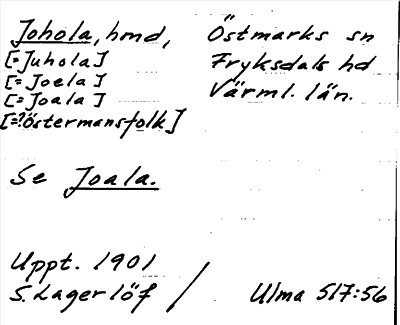 Johola, hmd, Östmarks sn
[=Juhola] Fryksdals hd
[=Joela] Värml. län.
[=Joala]
[=?Östermansfolk]
Se Joala.
Uppt. 1901
S. Lagerlöf / Ulma 517:56